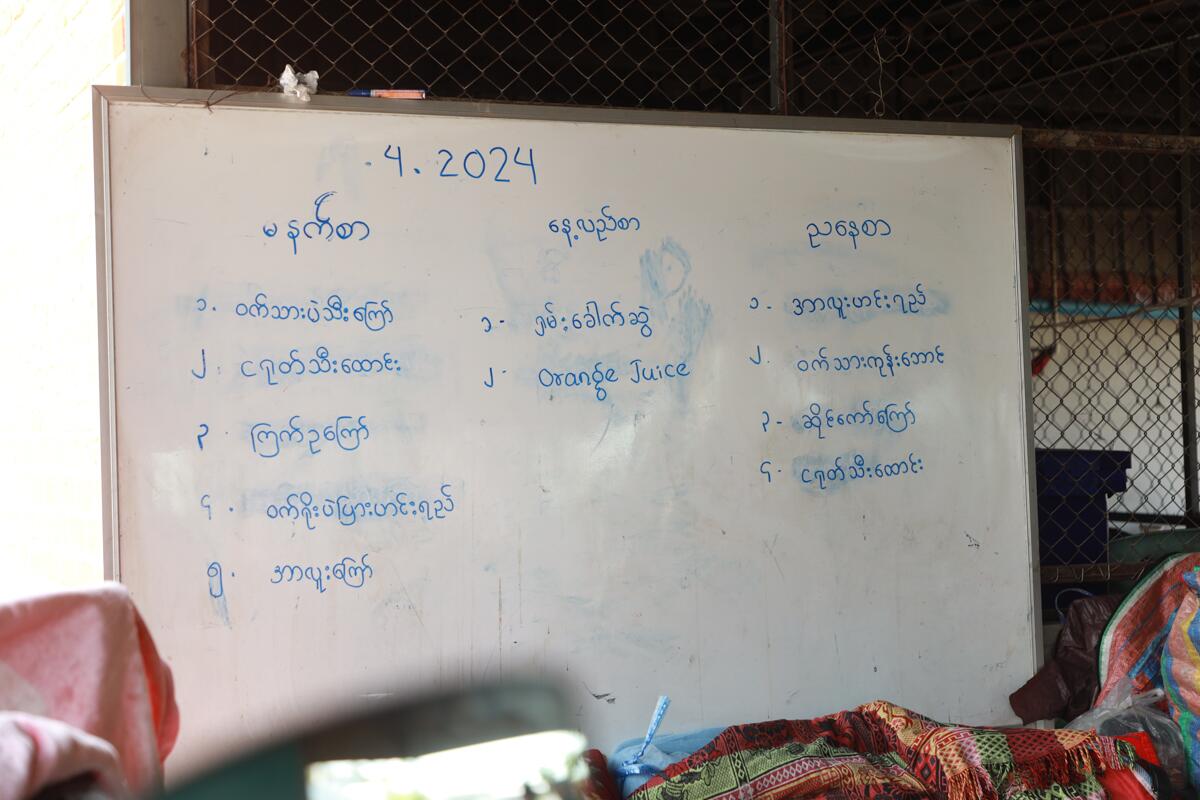 .4.2024
မနက်စာ
၁. ဝက်သားပဲသီးကြော်
၂. ငရုတ်သီးထောင်း
၃. ကြက်ဥကြော်
၄. ဝက်ရိုးပဲပြားဟင်းရည်
၅. အာလူးကြော်
နေ့လည်စာ
၁- ရှမ်းခေါက်ဆွဲ
၂- Orange Juice
ညနေစာ
၁- အာလူးဟင်းရည်
၂. ဝက်သားကုန်းဘောင်
၃- ဆိုင်ကော်ကြော်
၄- ငရုတ်သီးထောင်း